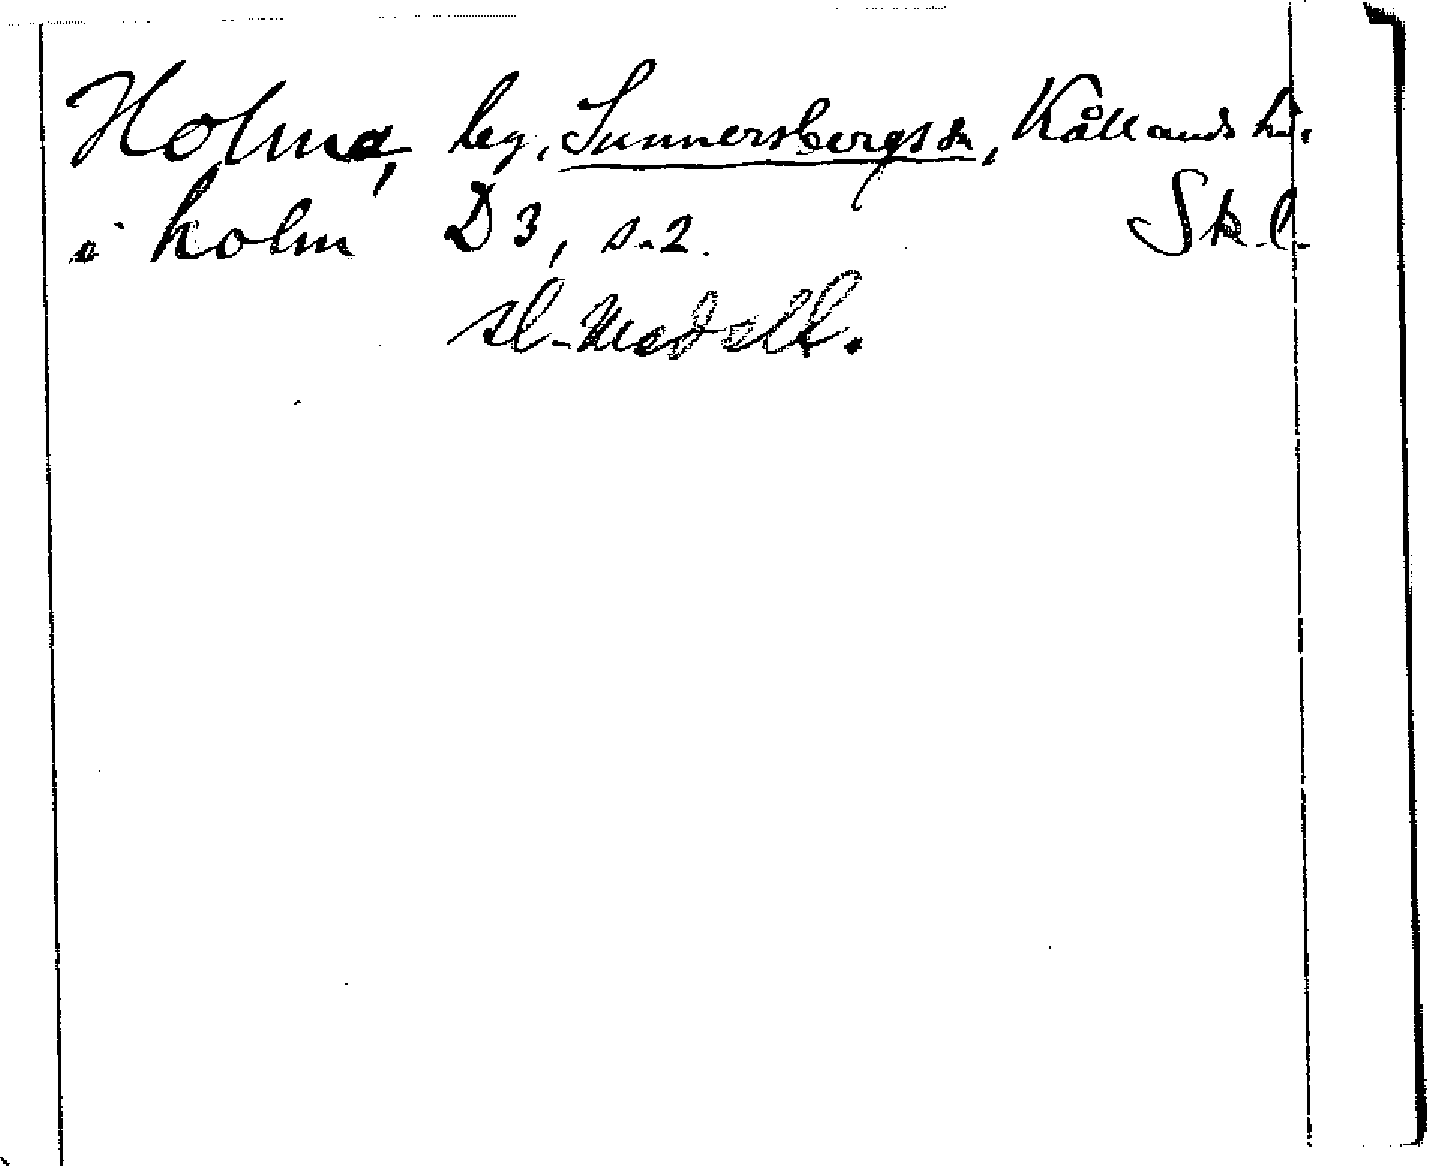 Holma, beg., Sunnersbergs sn, Kållands hd.
i holm D 3, s. 2. Sk. l.
sl. Medelt.